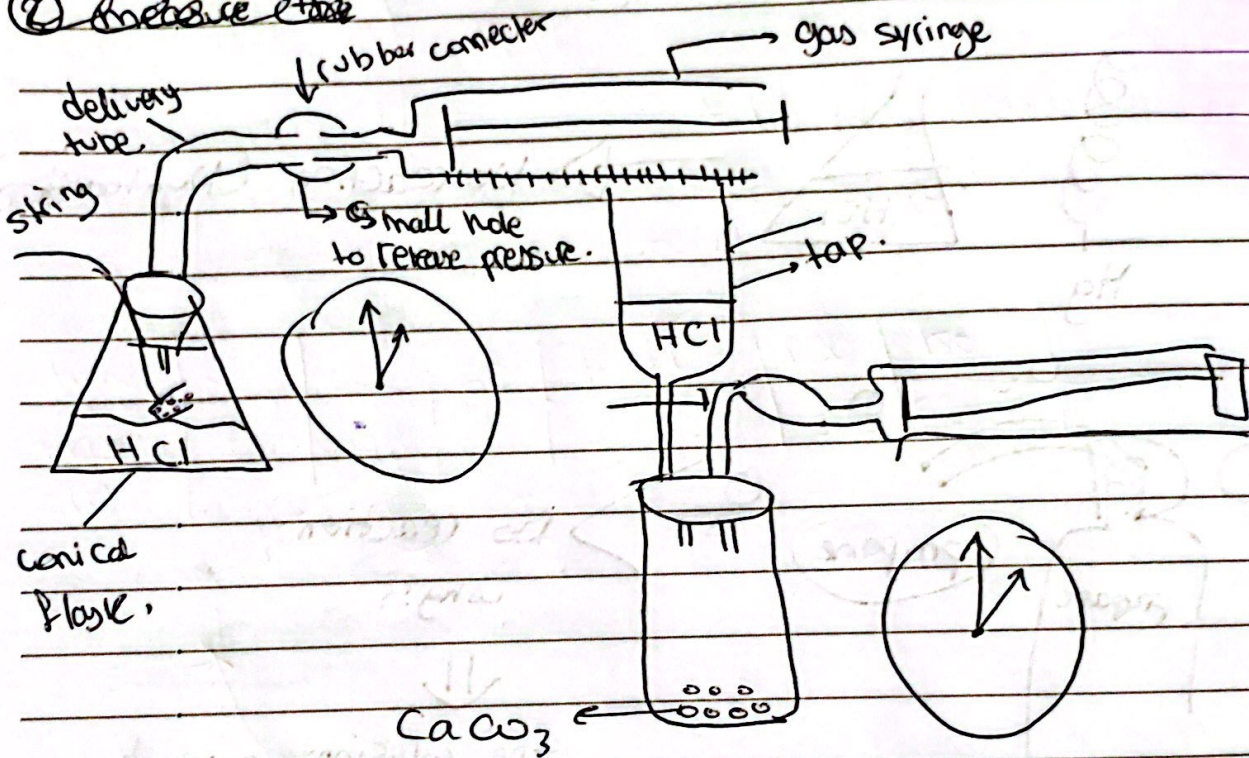 ②
rubber connecter
gas syringe
delivery
tube
string
small hole
to release pressure.
tap.
HCl
HCl
conical
flask.
CaCO3